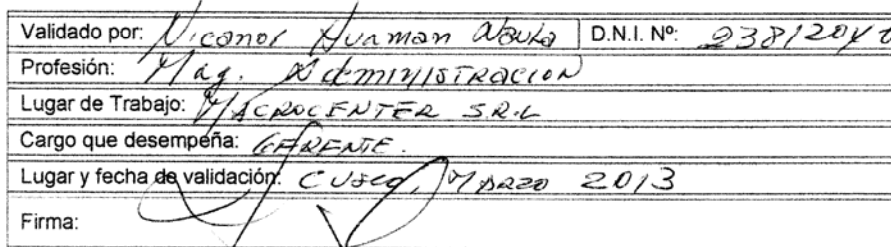 Validado por: Nicanor Huaman D.N.I. Nº:
Profesión: Mag. Administracion
Lugar de Trabajo: MACROCENTER S.R.L
Cargo que desempeña: GERENTE.
Lugar y fecha de validación: Cusco, Marzo 2013
Firma: